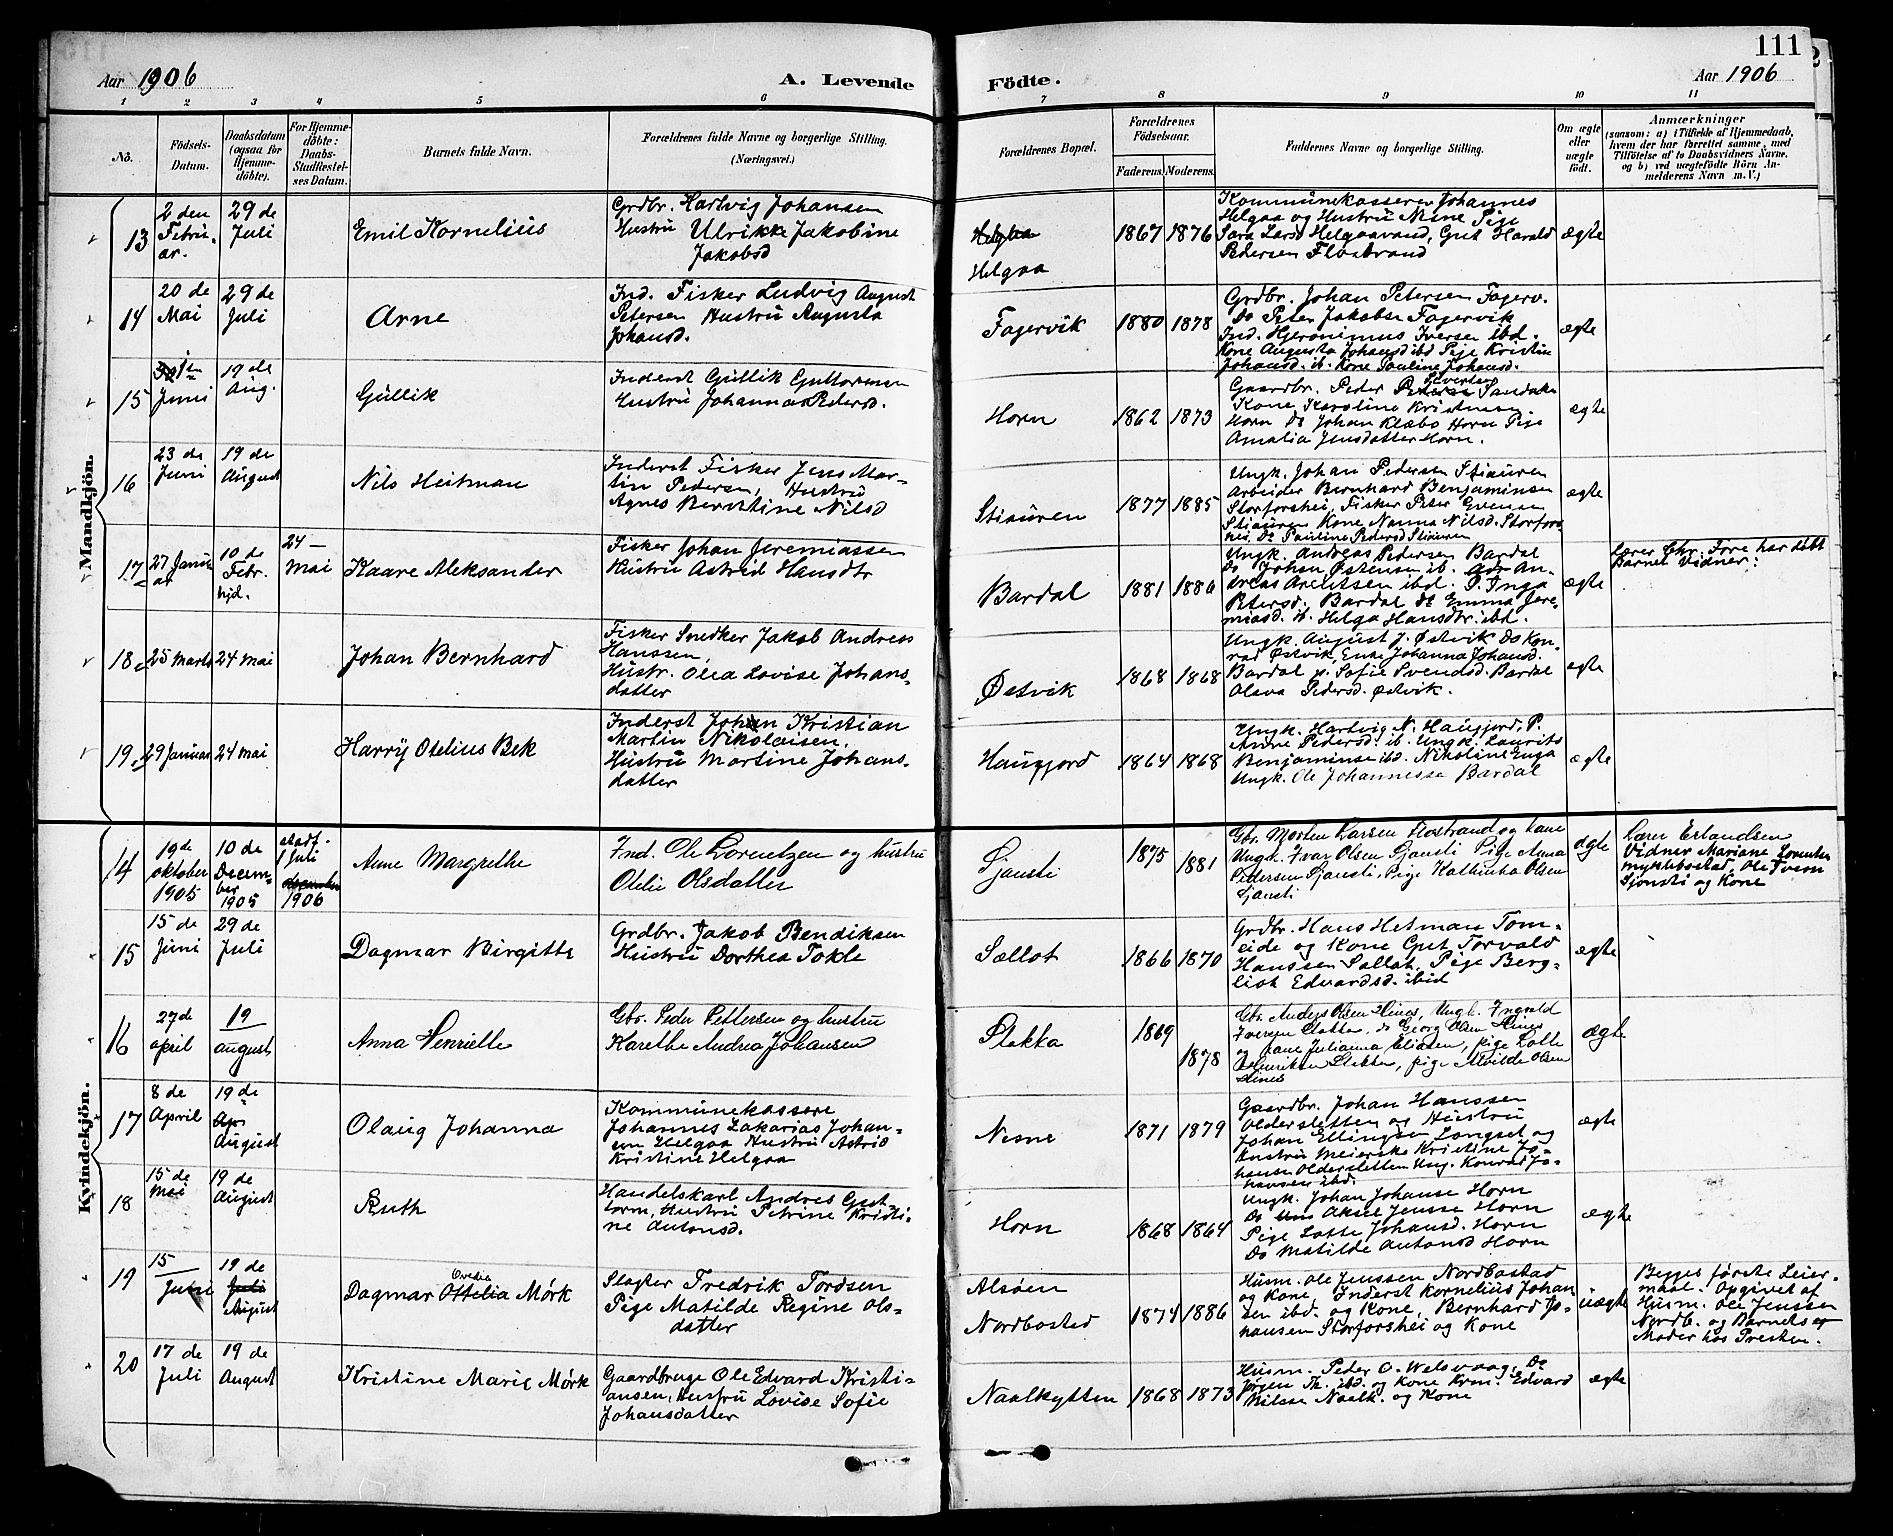 111
Aar 1906
A. Levende
Födte.
Aar 1906
1 2 3 4 5 6 7 8 9 10 11
No.
Födsels-
Datum.
Daabsdatum
(ogsaa for
Hjemme-
döbte).
For Hjemme-
döbte:
Daabs-
Stadfæstel-
ses Datum.
Barnets fulde Navn.
Forældrenes fulde Navne og borgerlige Stilling.
(Næringsvei.)
Forældrenes Bopæl.
Forældrenes
Födselsaar.
Faderens. Moderens.
Faddernes Navne og borgerlige Stilling.
Om ægte
eller
uægte
födt.
Anmærkninger
(saasom: a) i Tilfælde af Hjemmedaab,
hvem der har forrettet samme, med
Tilföielse af to Daabsvidners Navne,
og b) ved uægtefödte Börn An-
melderens Navn m. V.)
Mandkjön.
13
2 den
Febru-
ar.
29 de
Juli
Emil Kornelius
Grdbr. Hartvig Johansen
Hustru Ulrikke Jakobine
Jakobsd
Helgaa
Helgaa
1867 1876
Kommunekasserer Johannes
Helgaa og Hustru Nesne Pige
Sara Larsd Helgaavand, Gut Harald
Pedersen Flostrand
ægte
14
20 de
Mai
29 de
Juli
Arne
Ind. Fisker Ludvig August
Petersen Hustru Augusta
Johansd.
Fagervik
1880 1878
Grdbr. Johan Petersen Fagerv.
Do Peter Jakobsen Fagervik
Ind. Hjeronimus Iversen ibd.
Kone Augusta Johansd ibd Pige Kristine
Johansd. ib. Kone Pauline Johansd.
ægte
15
1ste
Juni
19 de
Aug.
Gullik
Inderst Gullik Guttormsen
Hustru Johanna Pedersd.
Horn
1862 1873
Gaardbr. Peder Sivertsen Sandaker
Kone Karoline Kristensen
Horn Do Johan Klæbo Horn Pige
Amalia Jensdatter Horn.
ægte
16
23 de
Juni
19 de
August
Nils Heitman
Inderst Fisker Jens Mar-
tin Pedersen, Hustru
Agnes Berntine Nilsd
Stiauren
1877 1885
Ungk. Johan Pedersen Stiauren
Arbeider Bernhard Benjaminsen
Storforshei, Fisker Peter Evensen
Stiauren Kone Nanna Nilsd. Storfors-
hei, Do Pauline Pedersd Stiauren
ægte
17
27 Janu-
ar
10 de
Febr.
hjd.
24 –
Mai
Kaare Aleksander
Fisker Johan Jeremiassen
Hustru Astrid Hansdtr
Bardal
1881 1886
Ungk. Andreas Pedersen Bardal
Do Johan Østensen ib. An-
dreas Arentsen ibd. P. Inga
Petersd. Bardal do Emma Jere-
miasd. ib. Helga Hansdtr. ibd.
ægte
Lærer Chr. Fore har döbt
Barnet Vidner:
18
25 Marts
24 Mai
Johan Bernhard
Fisker Snedker Jakob Andreas
Hanssen,
Hustr. Olea Lovise Johans-
datter
Østvik
1868 1868
Ungk. August J. Østvik Do Kon-
rad Østvik, Enke Johanna Johansd.
Bardal p. Sofie Svendsd. Bardal
Olava Pedersd. Østvik.
ægte
19
29 Januar
24 Mai
Harry Otelius Bek
Inderst Johan Kristian
Martin Nikolaisen.
Hustru Martine Johans-
datter
Haugjord
1864 1868
Ungk. Hartvig N. Haugjord, P.
Anne Pedersd. ib. Ungk. Laurits
Benjaminse ibd. Nikoline Enga
Ungk. Ole Johannesse Bardal
ægte
Kvindekjön.
14
19de
oktober
1905
10 de
Decem-
ber
1905
stadf.
1 Juli
december
1906
Anne Margrethe
Ind. Ole Lorentzen og hustru
Otelie Olsdatter
Sjonsti
1875 1881
Gbr. Morten Larsen Flostrand og kone
Ungk. Ivar Olsen Sjonsti Pige Anna
Pedersen Sjonsti, Pige Kathinka Olsen
Sjonsti
ægte
Lærer Erlandsen
Vidner Mariane Lorents
Myklebostad, Ole Iverson
Sjonsti og Kone
15
15 de
Juni
29 de
Juli
Dagmar Birgitte
Grdbr. Jakob Bendiksen
Hustru Dorthea Tokle
Sellot
1866 1870
Grdbr. Hans Hetman Tom-
eide og Kone Gut Torvald
Hanssen Sallot, Pige Berg-
liot Edvardsd. ibid
ægte
16
27d
april
19
august
Anna Henriette
Gbr. Peder Pettersen og hustru
Karethe Andrea Johansen
Slokka
1869
1878
Gbr. Anders Olsen Hines, Ungk. Ingvald
Iversen Slotta, do Georg Olsen Hines
og kone Julianna Eliasen, pige Lotte
Henriksen Slokka, pige Alvilde Olsen
Hines
ægte
17
8 de
April
19 de
Apr
August
Olaug Johanna
Kommunekasserer
Johannes Zakarias Johan-
sen Helgaa Hustru Astrid
Kristine Helgaa
Nesne
1871 1879
Gaardbr. Johan Hanssen
Oldersletten og Hustru
Johan Ellingsen Langset og
Hustru Meierske Kristine Jo-
hansen Oldersletten Ung. Konrad Jo-
hansen ibd.
ægte
18
15 de
Mai
19 de
August
Ruth
Handelskarl Andres Gut-
torm, Hustru Petrine Kristi-
ne Antonsd.
Horn
1868 1864
Ungk. Johan Johanse Horn
Do Aksel Jensse Horn
Pige Lotte Johansd. Horn
Do Matilde Antonsd Horn
ægte
19
15
Juni
19 de
Juli
August
Ovedia
Dagmar Ottelia Mørk
Slagter Fredrik Tordsen
Pige Matilde Regine Ols-
datter
Alsøen
Nordbostad
1874 1886
Husm. Ole Jenssen Nordbostad
og Kone, Inderst Kornelius Johan
sen ibd. og Kone, Bernhard Jo-
hansen Storforshei og Kone
uægte
Begges første Leier-
maal. Opgivet af
Husm. Ole Jenssen
Nordb. og Barnets
Moder hos Presten.
20
17 de
Juli
19 de
August
Kristine Marie Mørk
Gaardbruge Ole Edvard Kristi-
ansen, Hustru Lovise Sofie
Johansdatter
Naalkytten
1868 1873
Husm. Peder O. Welsvaag, Do
Jørgen Th. ibd. og Kone Krm. Edvard
Nilsse Naalk. og Kone
ægte